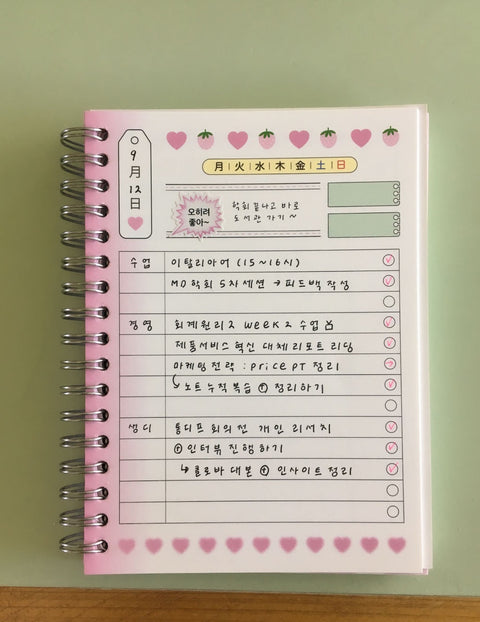 9
月
12
日
月|火|水|木|金|土|日
오히려
좋아~
학회 끝나고 바로
도서관 가기~
수업 이탈리아어 (15~16시)
MD학회 5차세션 → 피드백 작성
경영 회계원리2 week2 수업
제품서비스 혁신 대체리포트 리딩
마케팅 전략 : price PT 정리
노트 누적복습 정리하기
생디 통디프 회의 전 개인 리서치
인터뷰 진행하기
클로바 대본 인사이트 정리